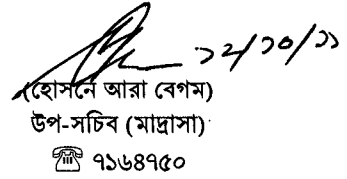 ১২/১০/১১
(হোসনে আরা বেগম)
উপ-সচিব (মাদ্রাসা)
☏ ৭১৬৪৭৫০